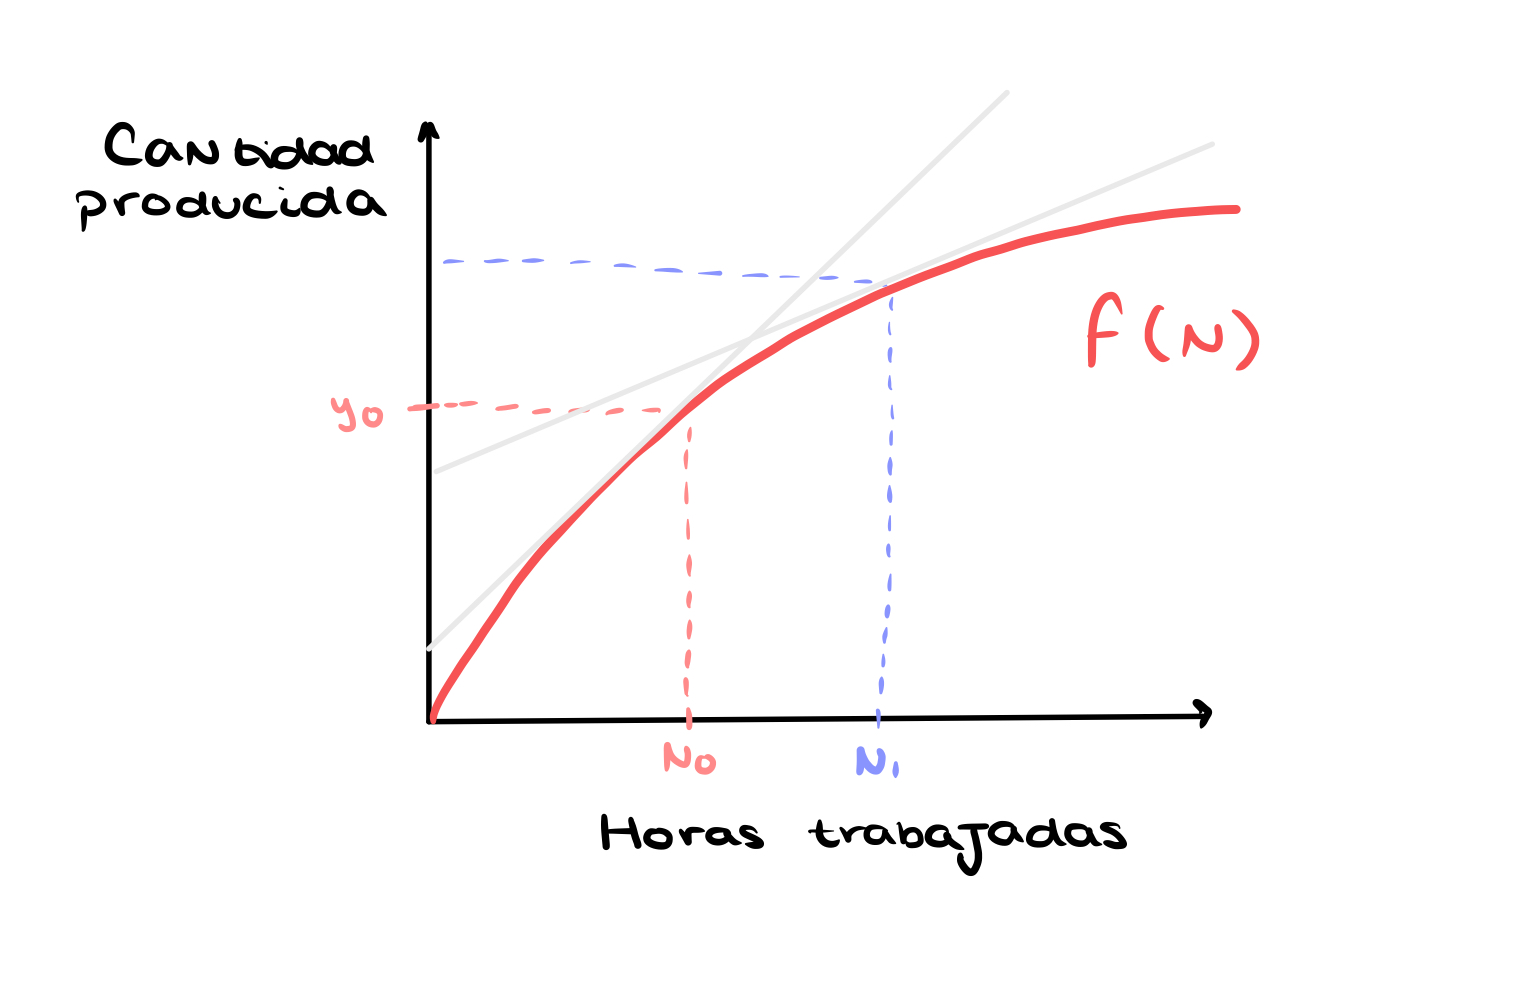 Cantidad
producida
f(N)
y0
N0
N1
Horas trabajadas